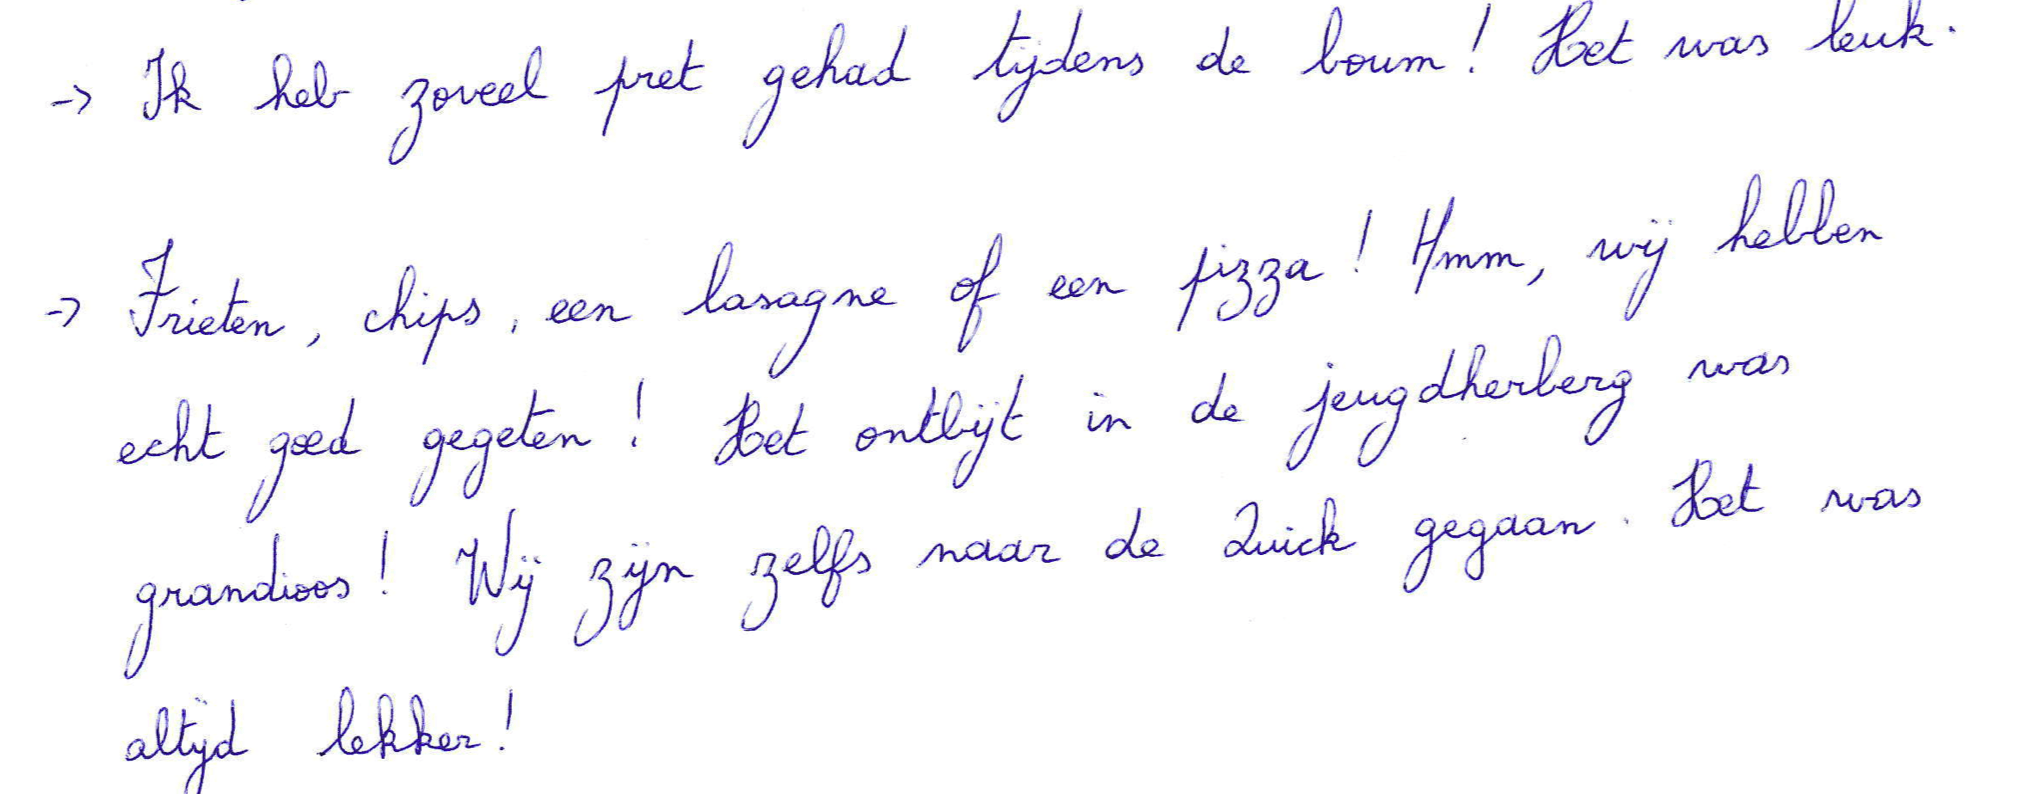 -> Ik heb zoveel pret gehad tijdens de boum! Het was leuk.
-> Frieten, chips, een lasagne of een pizza! Hmm, wij hebben
echt goed gegeten! Het ontbijt in de jeugdherberg was
grandioos! Wij zijn zelfs naar de Quick gegaan. Het was
altijd lekker!